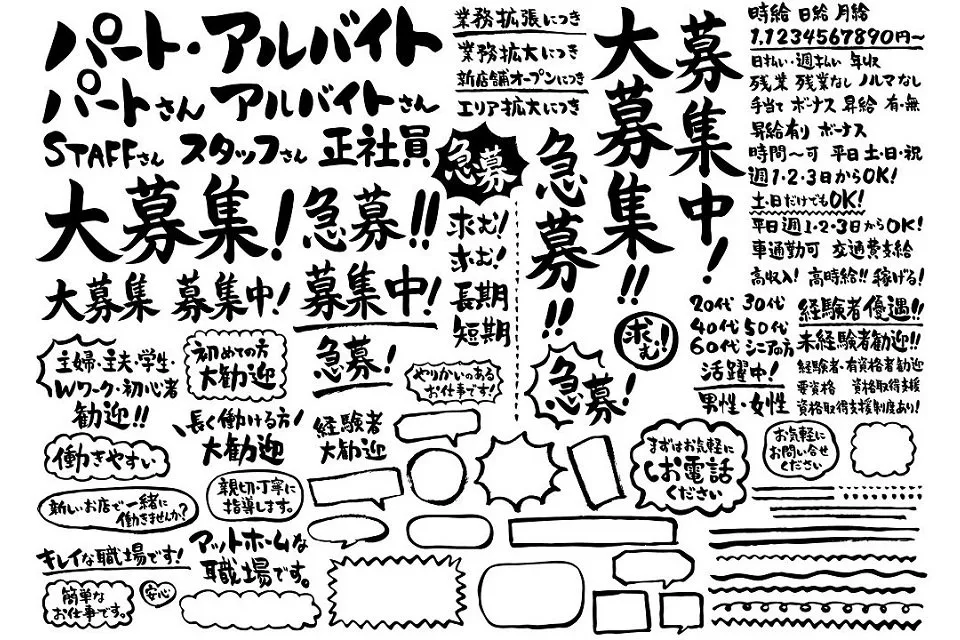 パート・アルバイト
パートさん アルバイトさん
STAFFさん スタッフさん 正社員
大募集! 急募!!
大募集 募集中! 募集中!
業務拡張につき
業務拡大につき
新店舗オープンにつき
エリア拡大につき
急募
求む!
求む!
長期
短期
急募!!
大募集!!
募集中!
時給 日給 月給
1,1234567890円〜
日払い・週払い 年収
残業 残業なし ノルマなし
手当て ボーナス 昇給 有・無
昇給有り ボーナス
時間〜可 平日 土・日・祝
週1・2・3日からOK!
土・日だけでもOK!
平日週1・2・3日からOK!
車通勤可 交通費支給
高収入! 高時給!! 稼げる!
20代 30代
40代 50代
60代 シニアの方
活躍中!
男性・女性
経験者優遇!!
未経験者歓迎!!
経験者・有資格者歓迎
要資格 資格取得支援
資格取得支援制度あり!
主婦・主夫・学生・
Wワーク・初心者
歓迎!!
初めての方
大歓迎
急募!
やりがいのある
お仕事です!
急募!
求む!!
長く働ける方
大歓迎
経験者
大歓迎
働きやすい
親切・丁寧に
指導します。
新しいお店で一緒に
働きませんか?
キレイな職場です!
アットホームな
職場です。
簡単な
お仕事です。
安心
まずはお気軽に
お電話
ください
お気軽に
お問い合せ
ください